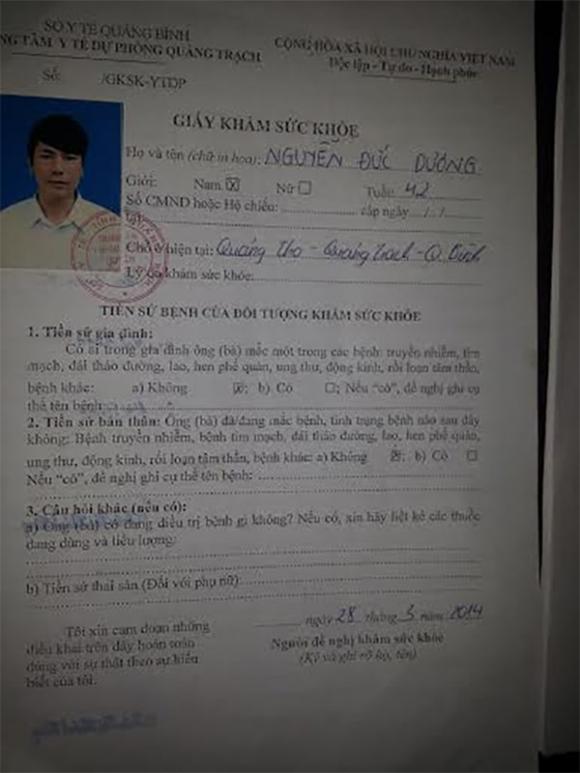 SỞ Y TẾ QUẢNG BÌNH
NG TÂM Y TẾ DỰ PHÒNG QUẢNG TRẠCH
Số: /GKSK-YTDP
CỘNG HÒA XÃ HỘI CHỦ NGHĨA VIỆT NAM
Độc lập - Tự do - Hạnh phúc
GIẤY KHÁM SỨC KHỎE
Họ và tên (chữ in hoa): NGUYỄN ĐỨC DƯƠNG
Giới: Nam ☒ Nữ ☐ Tuổi: 42
Số CMND hoặc Hộ chiếu: cấp ngày / /
tại
Chỗ ở hiện tại: Quảng Thọ - Quảng Trạch - Q. Bình
Lý do khám sức khỏe:
TIỀN SỬ BỆNH CỦA ĐỐI TƯỢNG KHÁM SỨC KHỎE
1. Tiền sử gia đình:
Có ai trong gia đình ông (bà) mắc một trong các bệnh: truyền nhiễm, tim
mạch, đái tháo đường, lao, hen phế quản, ung thư, động kinh, rối loạn tâm thần,
bệnh khác: a) Không ☒; b) Có ☐; Nếu "có", đề nghị ghi cụ
thể tên bệnh:
2. Tiền sử bản thân: Ông (bà) đã/đang mắc bệnh, tình trạng bệnh nào sau đây
không: Bệnh truyền nhiễm, bệnh tim mạch, đái tháo đường, lao, hen phế quản,
ung thư, động kinh, rối loạn tâm thần, bệnh khác: a) Không ☒; b) Có ☐
Nếu "có", đề nghị ghi cụ thể tên bệnh:
3. Câu hỏi khác (nếu có):
a) Ông (bà) có đang điều trị bệnh gì không? Nếu có, xin hãy liệt kê các thuốc
đang dùng và liều lượng:
b) Tiền sử thai sản (Đối với phụ nữ):
Tôi xin cam đoan những
điều khai trên đây hoàn toàn
đúng với sự thật theo sự hiểu
biết của tôi.
ngày 28 tháng 5 năm 2014
Người đề nghị khám sức khỏe
(Ký và ghi rõ họ, tên)